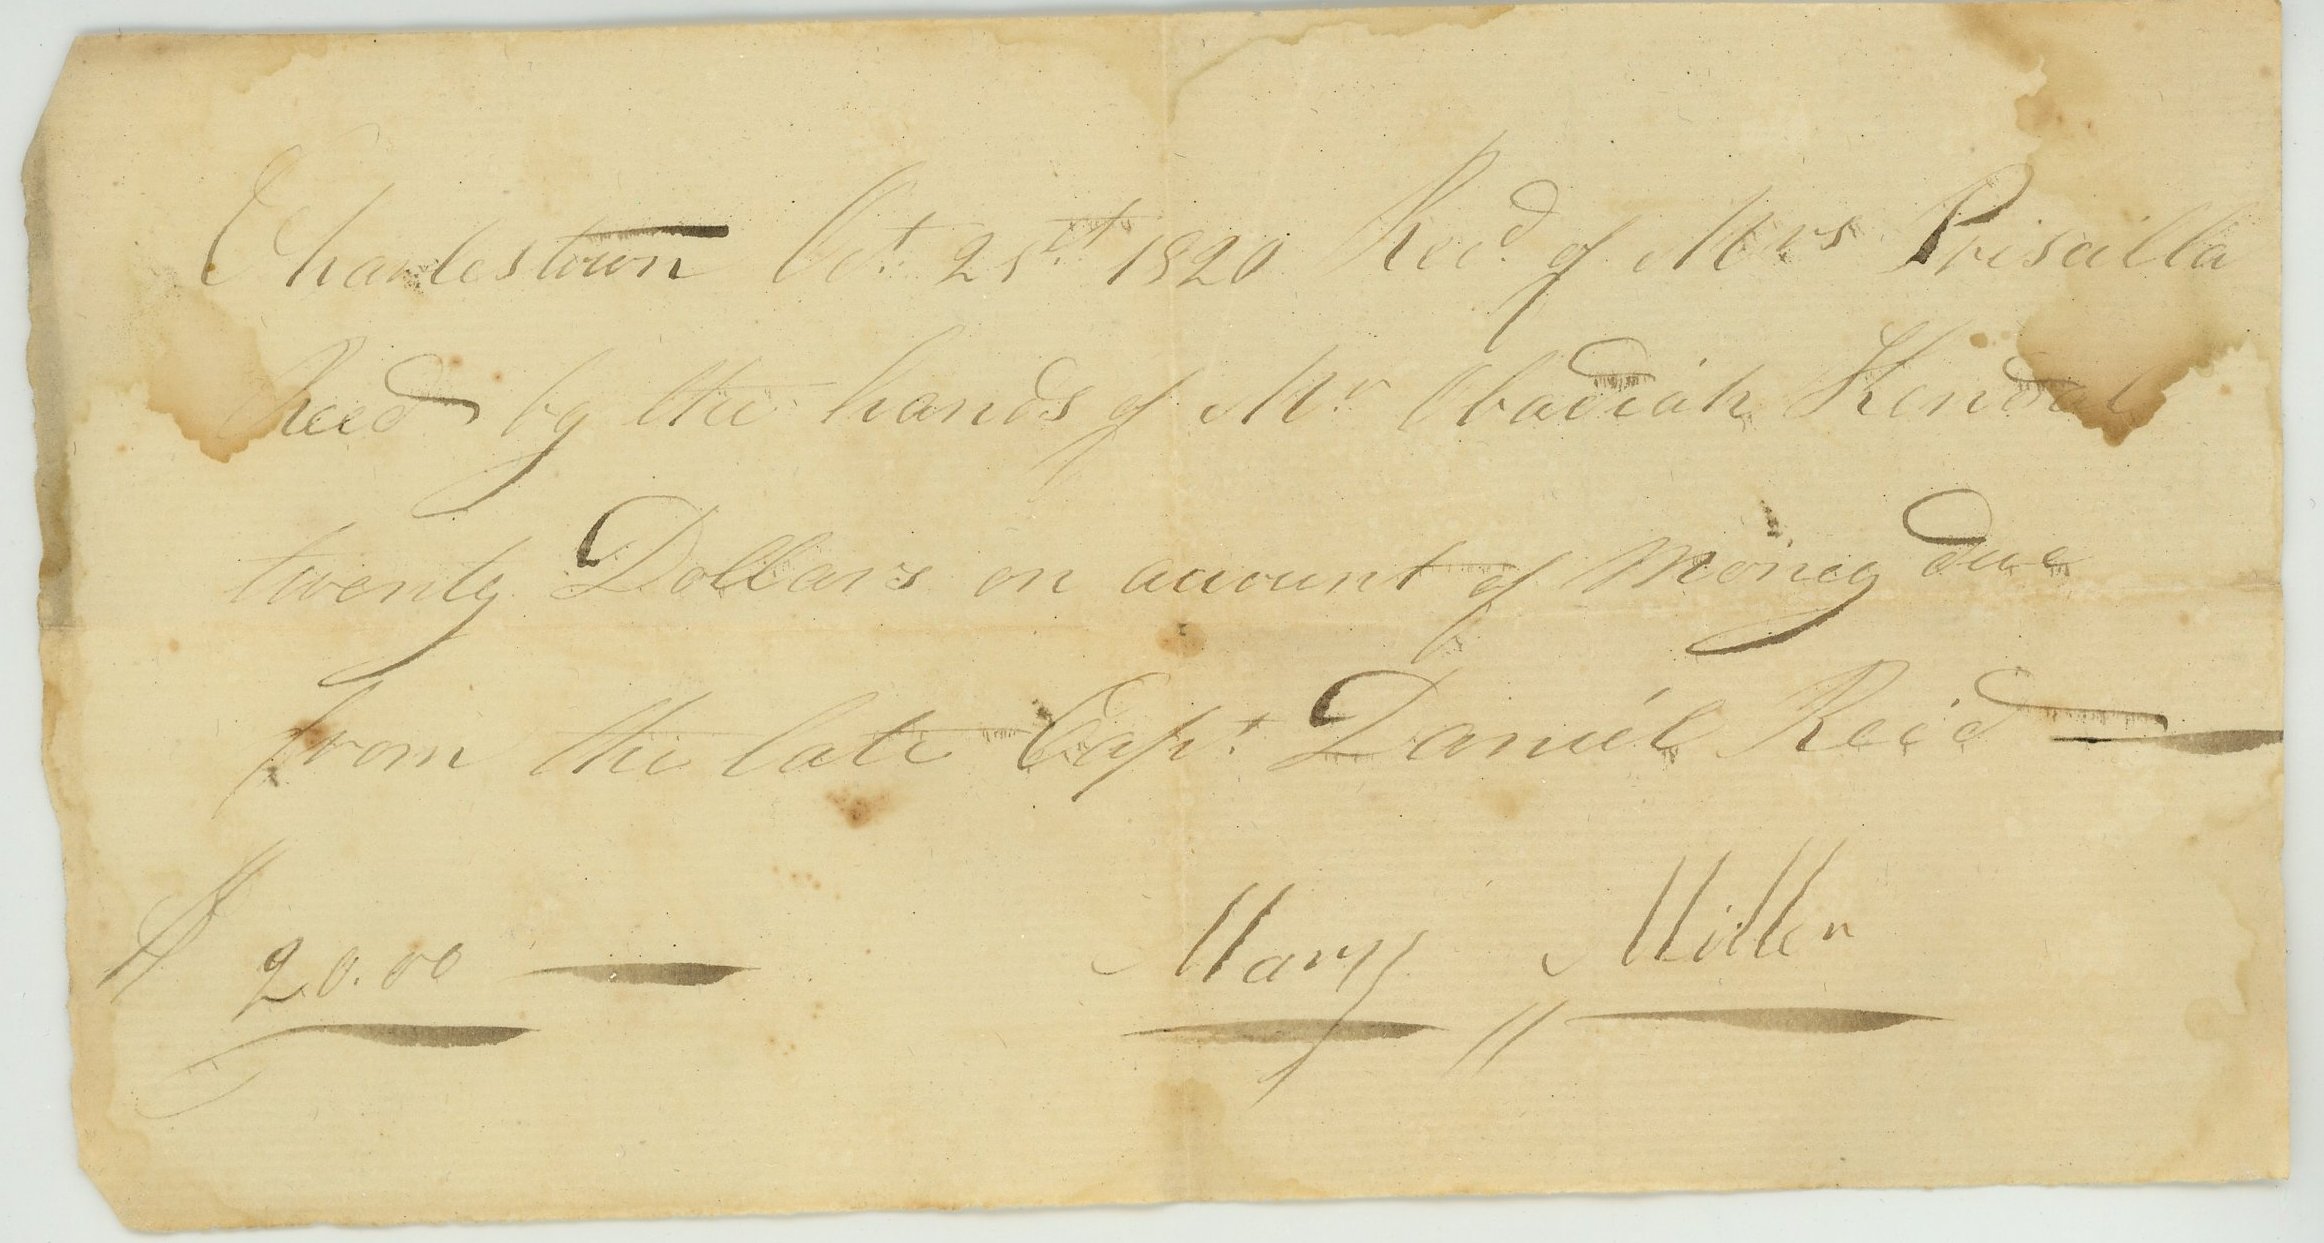 Charlestown Oct. 21st. 1820 Recd. of Mrs Priscilla
Reed by the hands of Mr Obadiah Kendal
twenty Dollars on account of Money due
from the late Capt. Daniel Reed
$ 20.00 Mary Miller